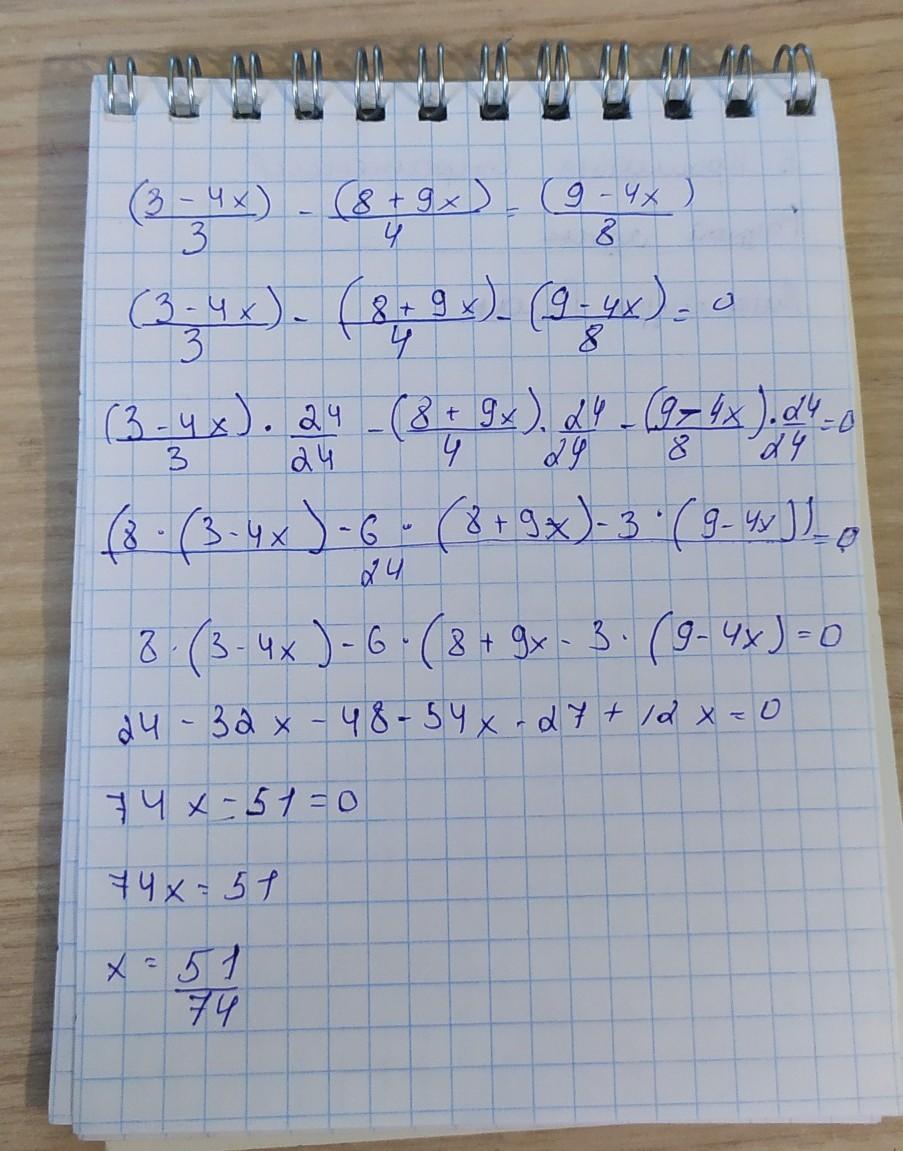 (3 - 4x)/3 - (8 + 9x)/4 = (9 - 4x)/8
(3 - 4x)/3 - (8 + 9x)/4 - (9 - 4x)/8 = 0
(3 - 4x)/3 · 24/24 - (8 + 9x)/4 · 24/24 - (9 - 4x)/8 · 24/24 = 0
(8 · (3 - 4x) - 6 · (8 + 9x) - 3 · (9 - 4x))/24 = 0
8 · (3 - 4x) - 6 · (8 + 9x - 3 · (9 - 4x) = 0
24 - 32x - 48 - 54x - 27 + 12x = 0
74x - 51 = 0
74x = 51
x = 51/74